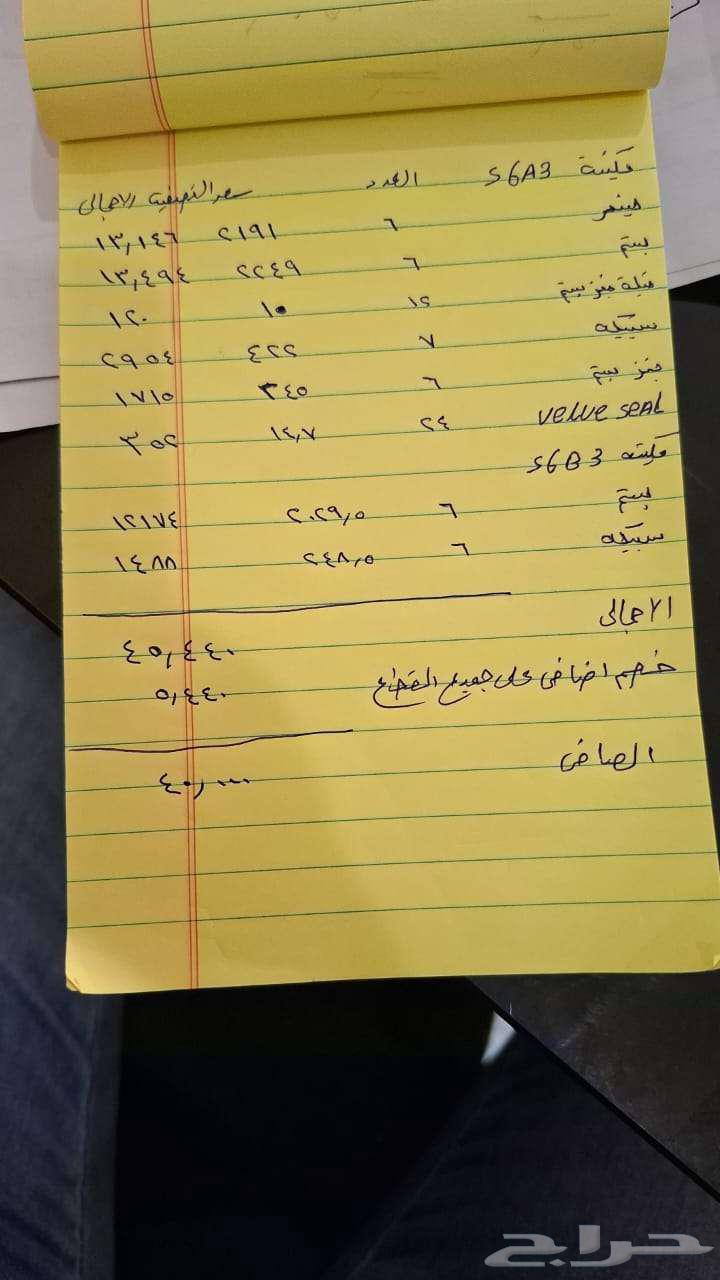 مكينة S6A3 العدد سعر التصفية الاجمالي
شمعر ٦ ٢١٩١ ١٣,١٤٦
بستم ٦ ٢٢٤٩ ١٣,٤٩٤
جبلة بستم ١٢ ١٠ ١٢٠
سبيكه ٧ ٤٢٢ ٢٩٥٤
بنز بستم ٦ ٣٤٥ ١٧١٥
VELVE SEAL ٢٤ ١٤,٧ ٣٥٢
مكينه S6B3
بستم ٦ ٢٠٢٩,٥ ١٢١٧٤
سبيكه ٦ ٢٤٨,٥ ١٤٨٨
الاجمالي
٤٥,٤٤٠
خصم اضافي على جميع القطع ٥,٤٤٠
الصافي
٤٠,٠٠٠
حراج